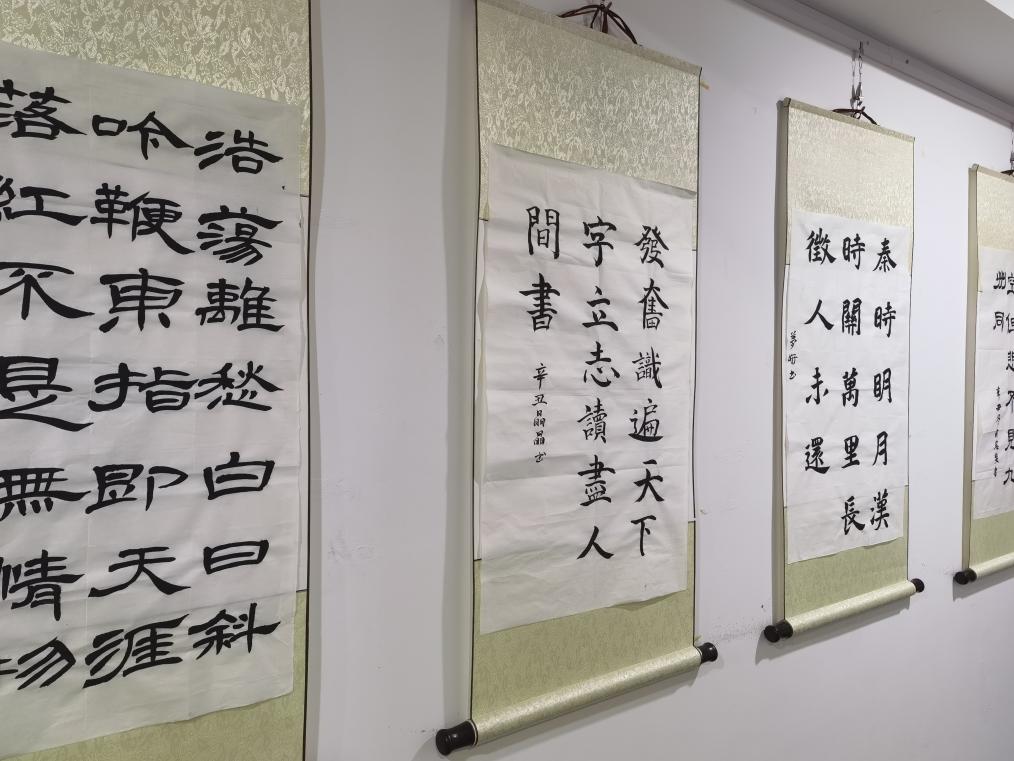 浩蕩離愁白日斜
吟鞭東指即天涯
落紅不是無情物
發奮識遍天下
字立志讀盡人
間書
辛丑晶晶书
秦時明月漢
時關萬里長
徵人未還
空但悲不見九
州同